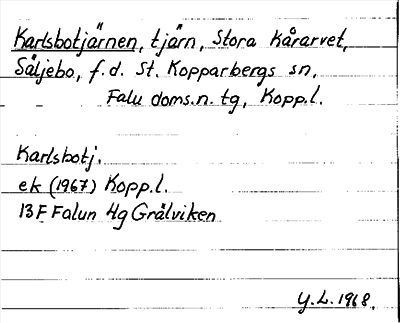 Karlsbotjärnen, tjärn, Stora Kårarvet,
Säljebo, f.d. St. Kopparbergs sn,
Falu doms.n. tg, Kopp.l.
Karlsbotj.
ek (1967) Kopp.l.
13F Falun 4g Grälviken
Y.L. 1968.